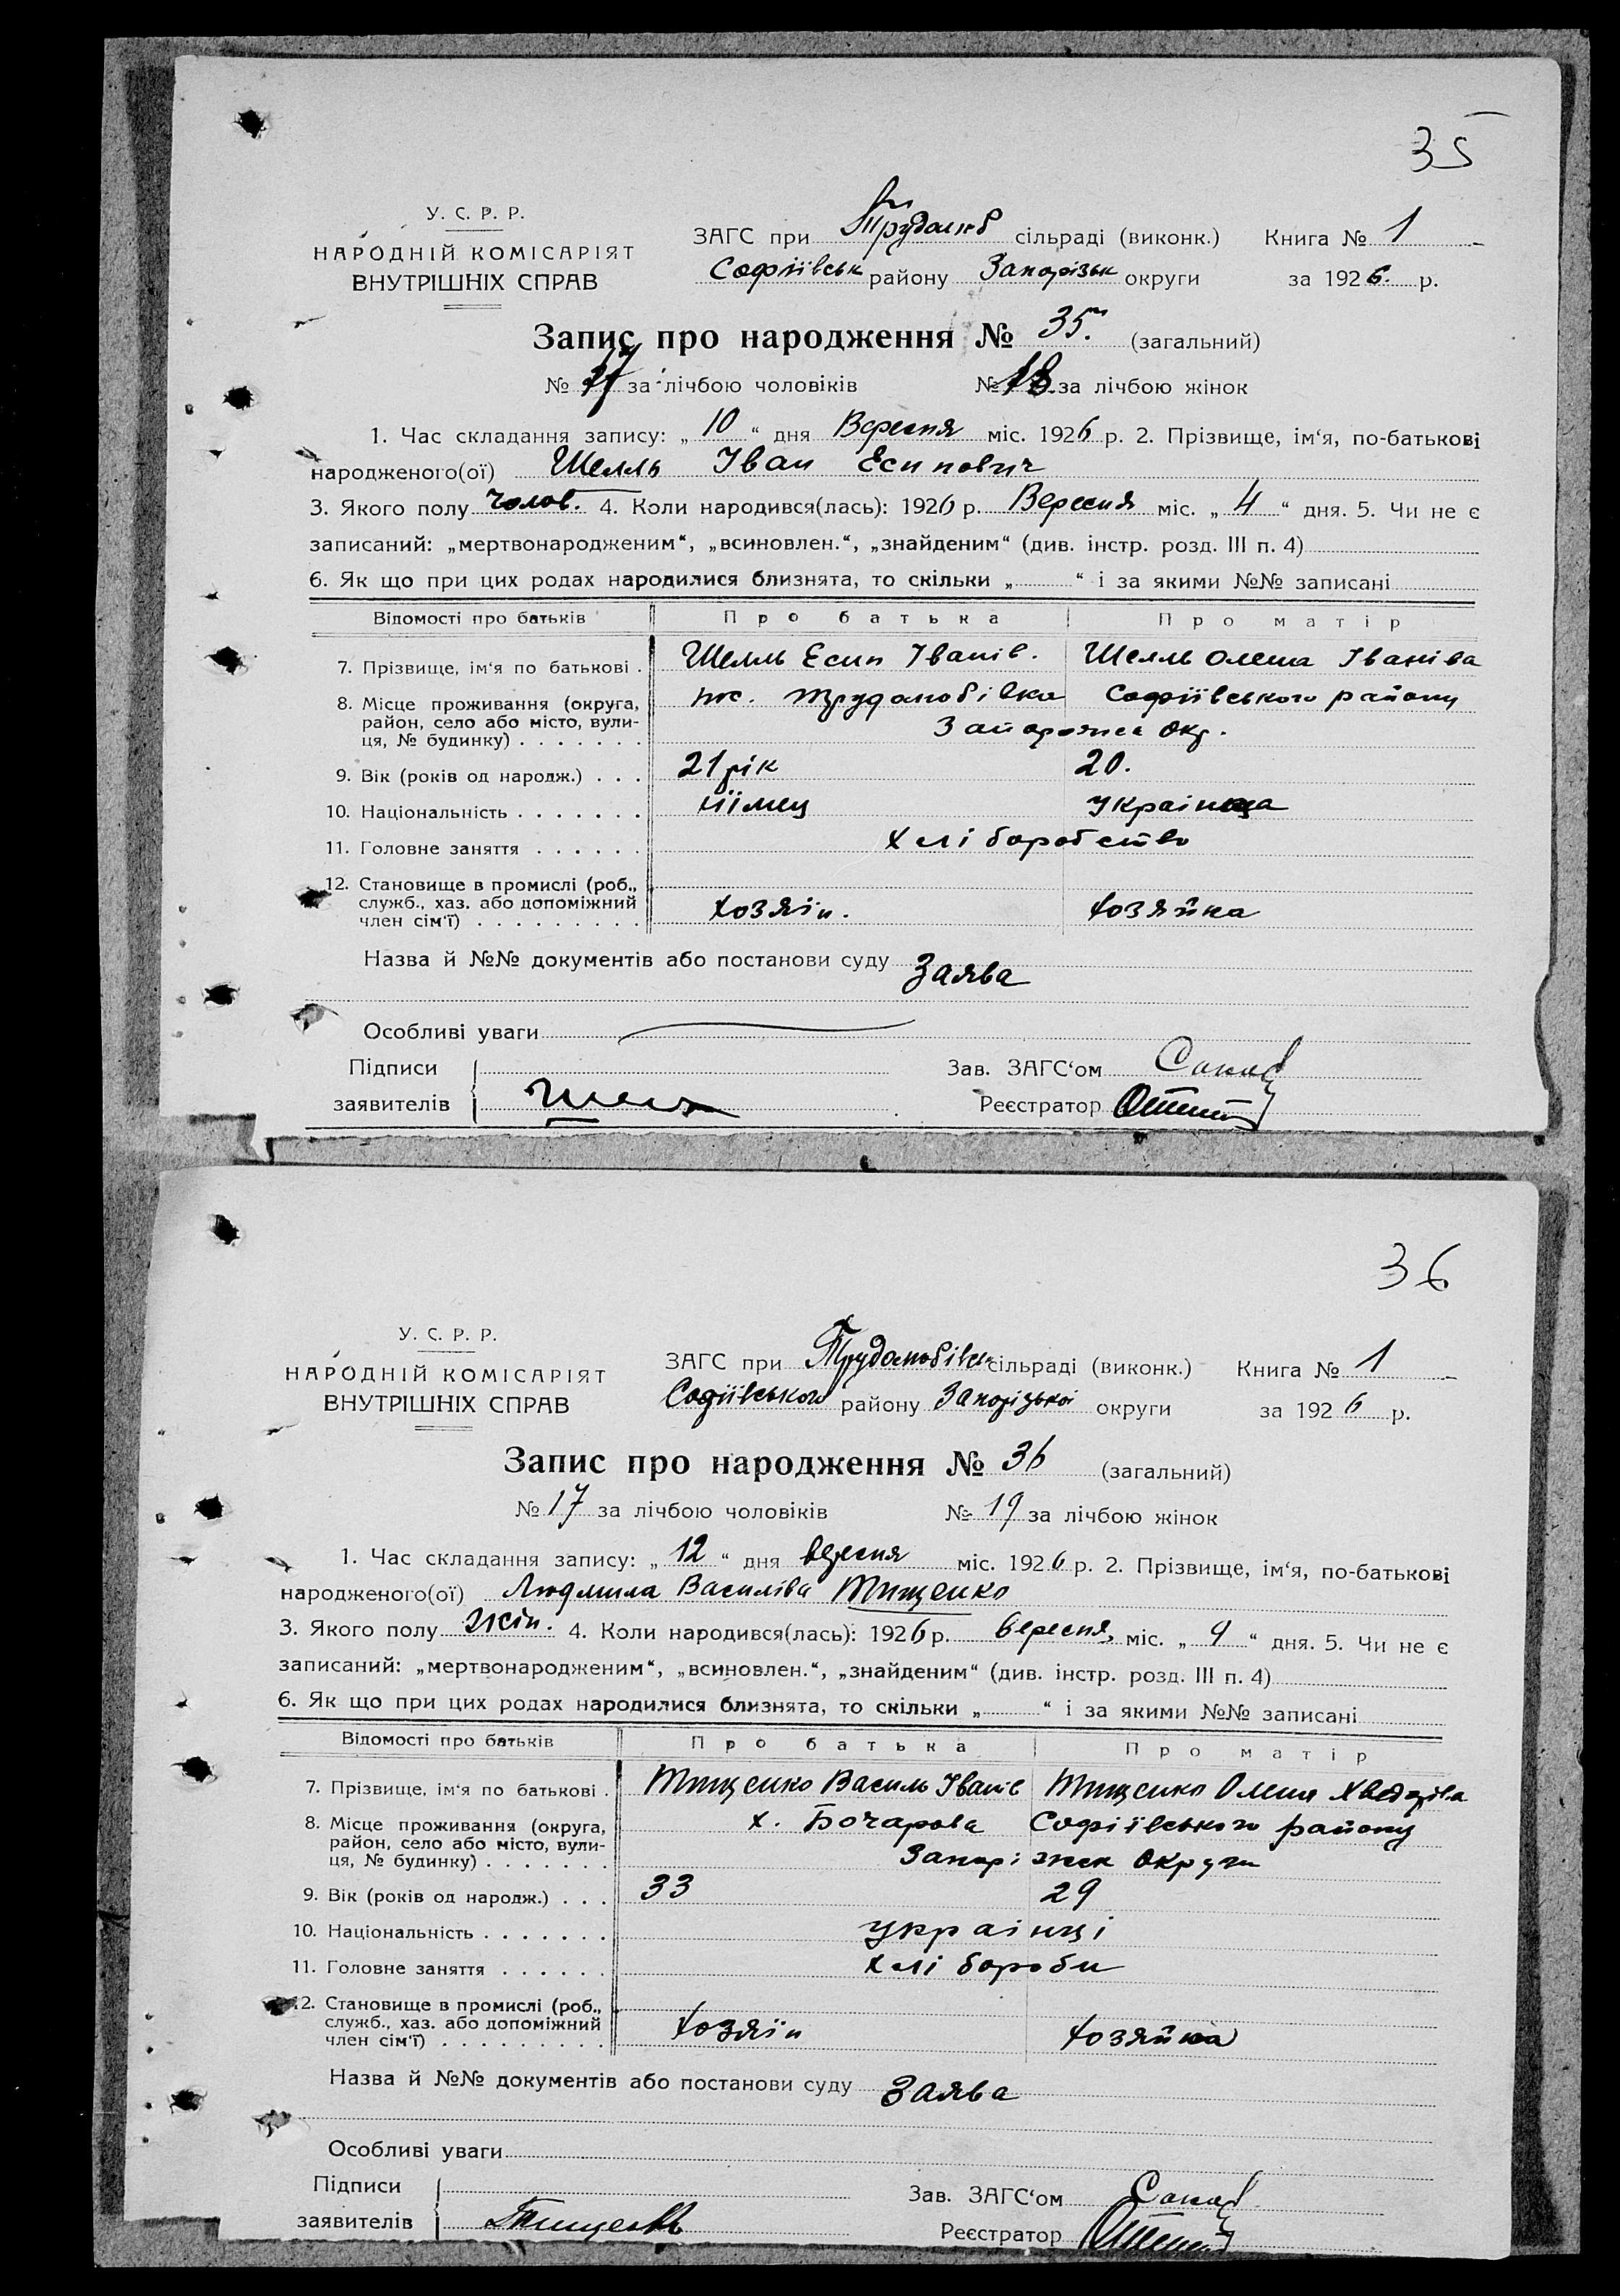 35
У. С. Р. Р.
НАРОДНІЙ КОМІСАРІЯТ
ВНУТРІШНІХ СПРАВ
ЗАГС при Трудолюб сільраді (виконк.) Книга № 1
Софіївськ району Запорізьк округи за 1926. р.
Запис про народження № 35. (загальний)
№ 17 за лічбою чоловіків № 18 за лічбою жінок
1. Час складання запису: „ 10 “ дня Вересня міс. 1926 р. 2. Прізвище, ім‘я, по-батькові
народженого(ої) Шелль Іван Есипович
3. Якого полу чолов. 4. Коли народився(лась): 1926 р. Вересня міс. „ 4 “ дня. 5. Чи не є
записаний: „мертвонародженим“, „всиновлен.“, „знайденим“ (див. інстр. розд. III п. 4)
6. Як що при цих родах народилися близнята, то скільки „ “ і за якими №№ записані
Відомості про батьків Про батька Про матір
7. Прізвище, ім‘я по батькові . Шелль Есип Іванів. Шелль Олена Іваніва
8. Місце проживання (округа, Софіївського району
район, село або місто, вули-
ця, № будинку) . . . . . . . Окр.
9. Вік (років од народж.) . . . 21 рік 20.
10. Національність . . . . . . . німец українца
11. Головне заняття . . . . . . хліборобство
12. Становище в промислі (роб.,
служб., хаз. або допоміжний
член сім‘ї) . . . . . . . . . хозяїн. хозяйка
Назва й №№ документів або постанови суду Заява
Особливі уваги
Підписи Зав. ЗАГС‘ом
заявителів Реєстратор
36
У. С. Р. Р.
НАРОДНІЙ КОМІСАРІЯТ
ВНУТРІШНІХ СПРАВ
ЗАГС при Трудолюбівськ сільраді (виконк.) Книга № 1
Софіївського району Запорізької округи за 1926 р.
Запис про народження № 36 (загальний)
№ 17 за лічбою чоловіків № 19 за лічбою жінок
1. Час складання запису: „ 12 “ дня вересня міс. 1926 р. 2. Прізвище, ім‘я, по-батькові
народженого(ої) Людмила Василіва Тищенко
3. Якого полу жін. 4. Коли народився(лась): 1926 р. вересня, міс. „ 9 “ дня. 5. Чи не є
записаний: „мертвонародженим“, „всиновлен.“, „знайденим“ (див. інстр. розд. III п. 4)
6. Як що при цих родах народилися близнята, то скільки „ “ і за якими №№ записані
Відомості про батьків Про батька Про матір
7. Прізвище, ім‘я по батькові . Тищенко Василь Іванів Тищенко Олена Хведорівна
8. Місце проживання (округа, х. Бочарова Софіївського району
район, село або місто, вули-
ця, № будинку) . . . . . . . Запоріжск Округи
9. Вік (років од народж.) . . . 33 29
10. Національність . . . . . . . українці
11. Головне заняття . . . . . . хлібороби
12. Становище в промислі (роб.,
служб., хаз. або допоміжний
член сім‘ї) . . . . . . . . . хозяїн хозяйка
Назва й №№ документів або постанови суду Заява
Особливі уваги
Підписи Зав. ЗАГС‘ом
заявителів Реєстратор